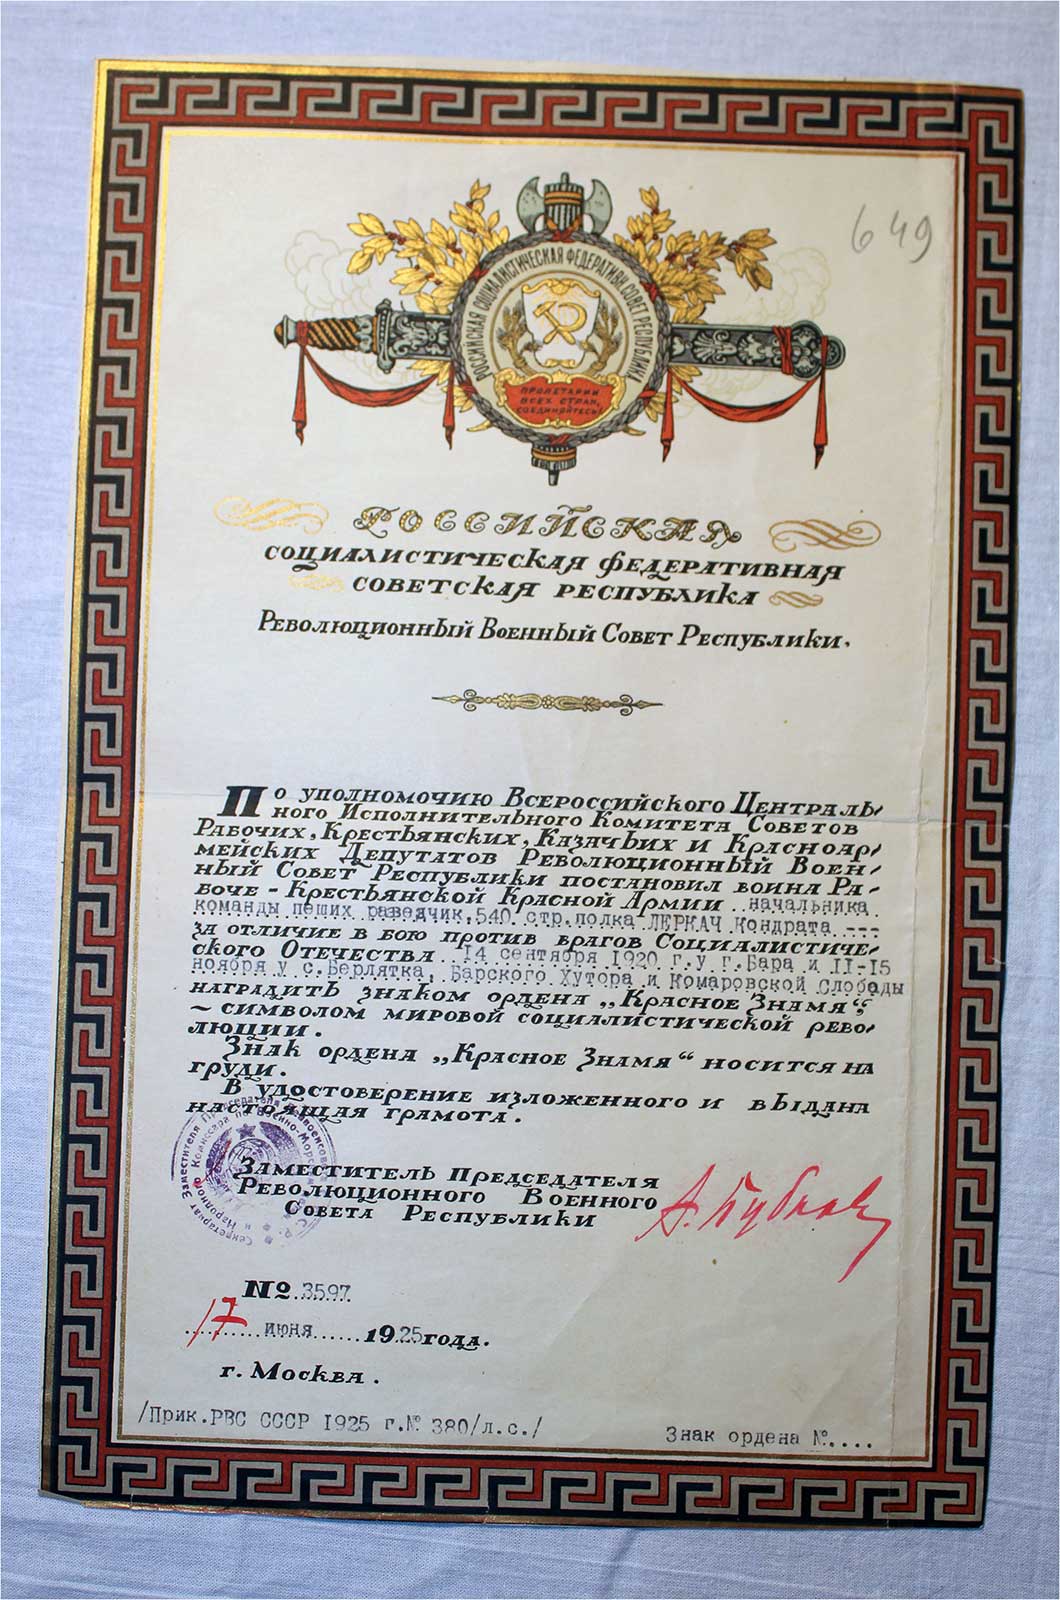 649
РОССИЙСКАЯ СОЦИАЛИСТИЧЕСКАЯ ФЕДЕРАТИВН. СОВЕТ. РЕСПУБЛИКА
ПРОЛЕТАРИИ
ВСЕХ СТРАН,
СОЕДИНЯЙТЕСЬ!
РОССИЙСКАЯ
СОЦИАЛИСТИЧЕСКАЯ ФЕДЕРАТИВНАЯ
СОВЕТСКАЯ РЕСПУБЛИКА
РЕВОЛЮЦИОННЫЙ ВОЕННЫЙ СОВЕТ РЕСПУБЛИКИ.
По уполномочию Всероссийского Централь-
ного Исполнительного Комитета Советов
Рабочих, Крестьянских, Казачьих и Красноар-
мейских Депутатов Революционный Воен-
ный Совет Республики постановил воина Ра-
боче-Крестьянской Красной Армии начальника
команды пеших разведчик. 540 стр. полка ЛЕРКАЧ Кондрата ---
за отличие в бою против врагов Социалистиче-
ского Отечества 14 сентября 1920 г. у г. Бара и 11-15
ноября у с. Верлятка, Барского Хутора и Комаровской Слободы
наградить знаком ордена „Красное Знамя“,
~ символом мировой социалистической рево-
люции.
Знак ордена „Красное Знамя“ носится на
груди.
В удостоверение изложенного и выдана
настоящая грамота.
Секретариат Заместителя Председателя Реввоенсовета
и Народного Комиссара по Военно-Морским
Заместитель Председателя
Революционного Военного
Совета Республики
А. Бубнов
№ 3597
17 июня 1925 года.
г. Москва.
/Прик. РВС СССР 1925 г. № 380/л.с./
Знак ордена №....